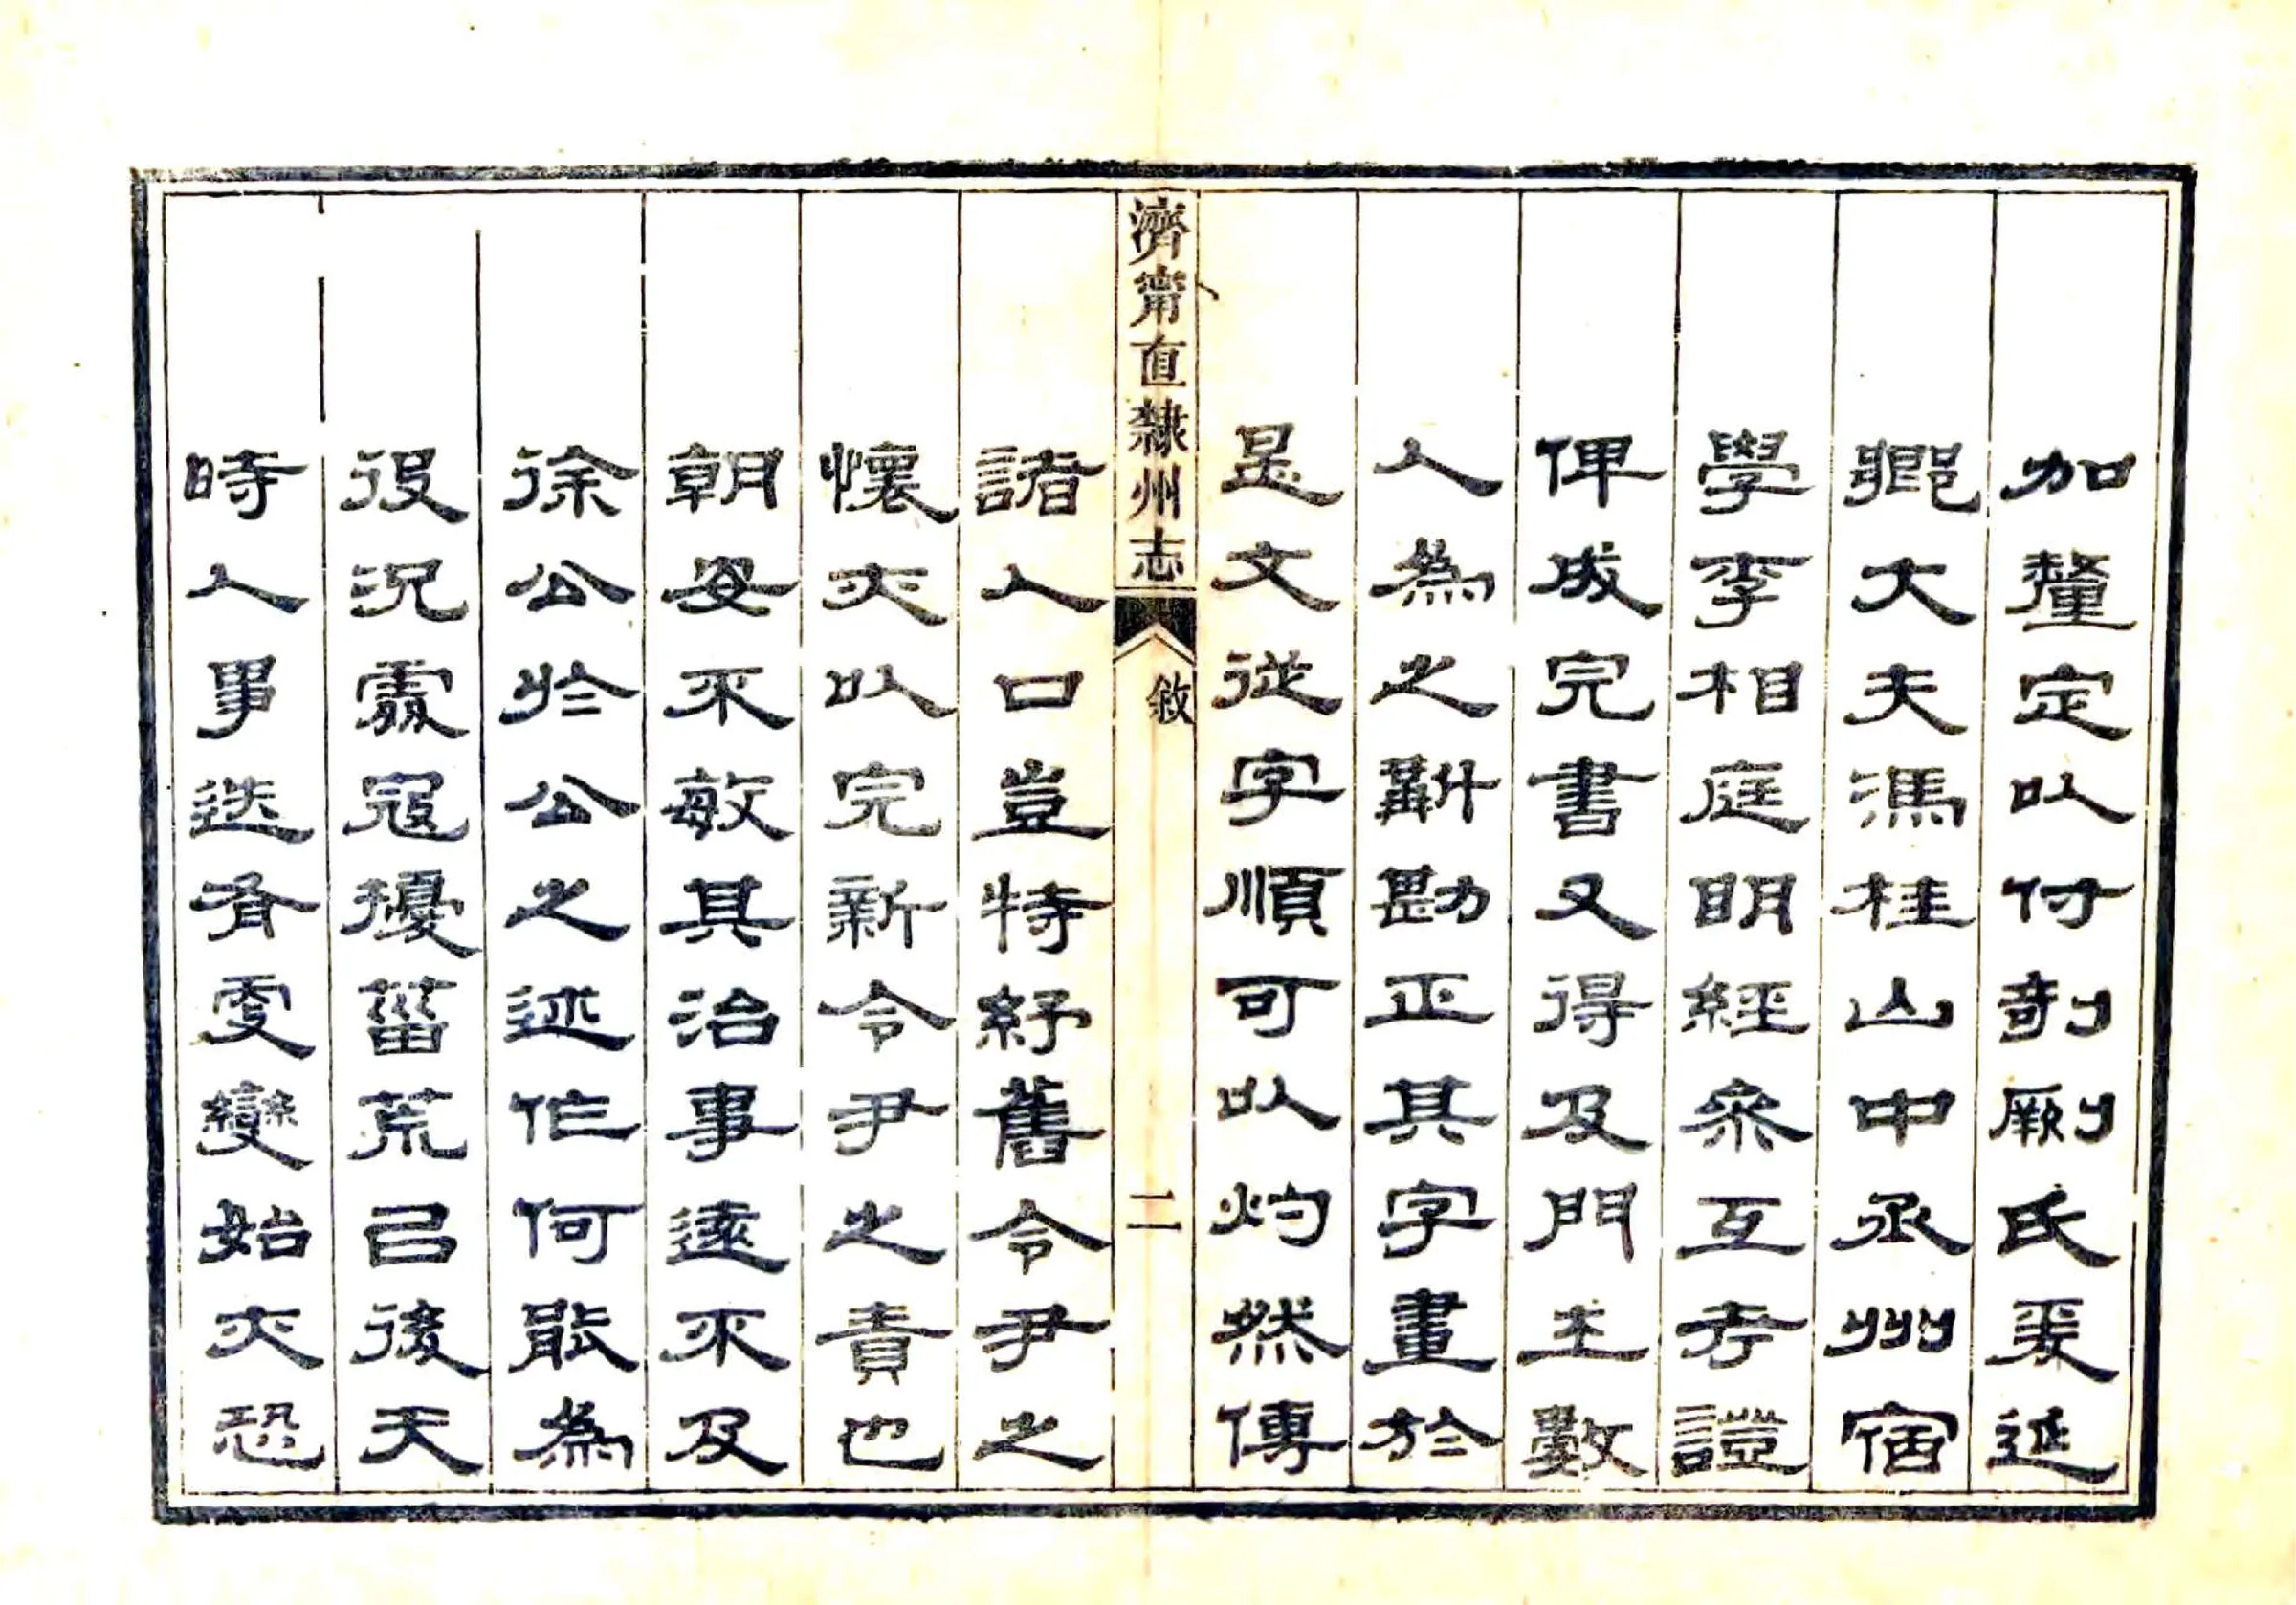 加釐定以付剞劂氏爰延
鄉大夫馮桂山中丞州宿
學李相庭明經參互考證
俾成完書又得及門王數
人為之斠勘正其字畫於
是文從字順可以灼然傳
濟甯直隸州志
敘
二
諸人口豈特紓舊令尹之
懷亦以完新令尹之責也
朝安不敏其治事遠不及
徐公於公之述作何能為
役況霧寇擾菑荒已後天
時人事迭有更變始亦恐